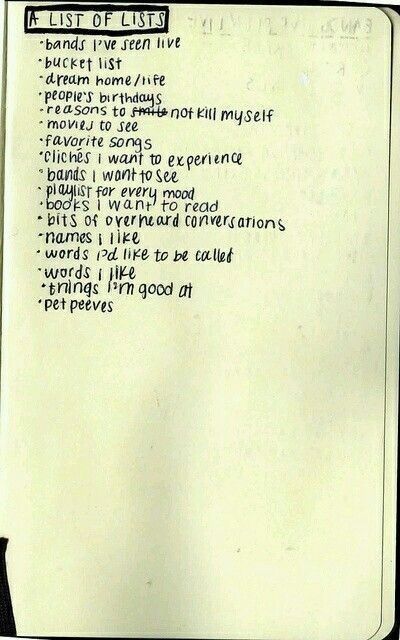 A LIST OF LISTS
·bands i've seen live
·bucket list
·dream home/life
·people's birthdays
·reasons to smile not kill myself
·movies to see
·favorite songs
·clichés i want to experience
·bands i want to see
·playlist for every mood
·books i want to read
·bits of overheard conversations
·names i like
·words i'd like to be called
·words i like
·things i'm good at
·pet peeves